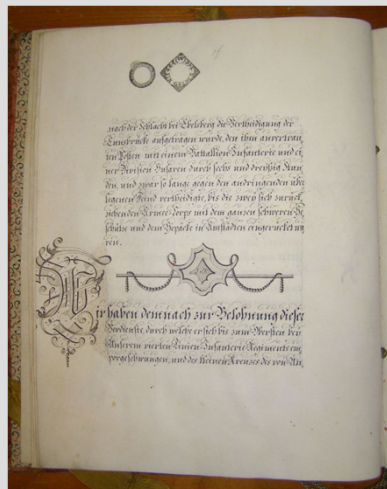 nach der Schlacht bei Ebelsberg die Vertheidigung der
Ennsbrücke aufgetragen wurde, den ihm anvertrau
ten Posten mit einem Battallion Infanterie und ei
ner Division Husaren durch sechs und dreißig Stun
den, und zwar so lange gegen den andringenden über
legenen Feind vertheidigte, bis die zwey sich zurück
ziehenden Armee-Corps mit dem ganzen schweren Ge
schütze und dem Gepäcke in Amstädten eingerücket wa
ren.
Wir haben demnach zur Belohnung dieser
Verdienste, durch welche er sich bis zum Obersten bey
Unserem vierten Linien-Infanterie-Regimente em
porgeschwungen, und des kleinen Kreuzes des von Un